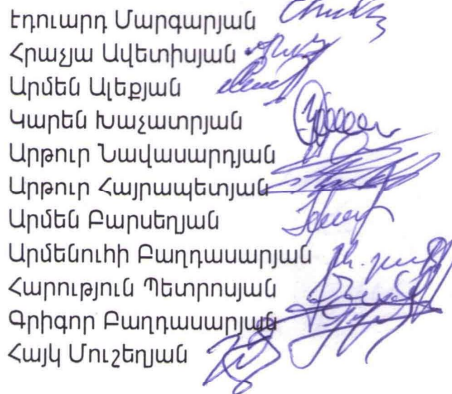 Էդուարդ Մարգարյան
Հրաչյա Ավետիսյան
Արմեն Ալեքյան
Կարեն Խաչատրյան
Արթուր Նավասարդյան
Արթուր Հայրապետյան
Արմեն Բարսեղյան
Արմենուհի Բաղդասարյան
Հարություն Պետրոսյան
Գրիգոր Բաղդասարյան
Հայկ Մուշեղյան